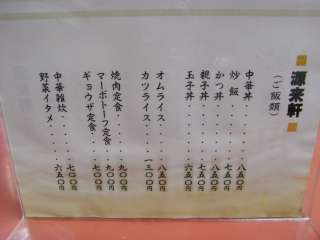 源来軒
(ご飯類)
中華丼・・・・・八五〇円
炒飯・・・・・・七五〇円
かつ丼・・・・・八五〇円
親子丼・・・・・七五〇円
玉子丼・・・・・六五〇円
オムライス・・・・八五〇円
カツライス・・・一三〇〇円
焼肉定食・・・・九〇〇円
マーボトーフ定食・九〇〇円
ギョウザ定食・・・七〇〇円
中華雑炊・・・・・七〇〇円
野菜イタメ・・・・六五〇円